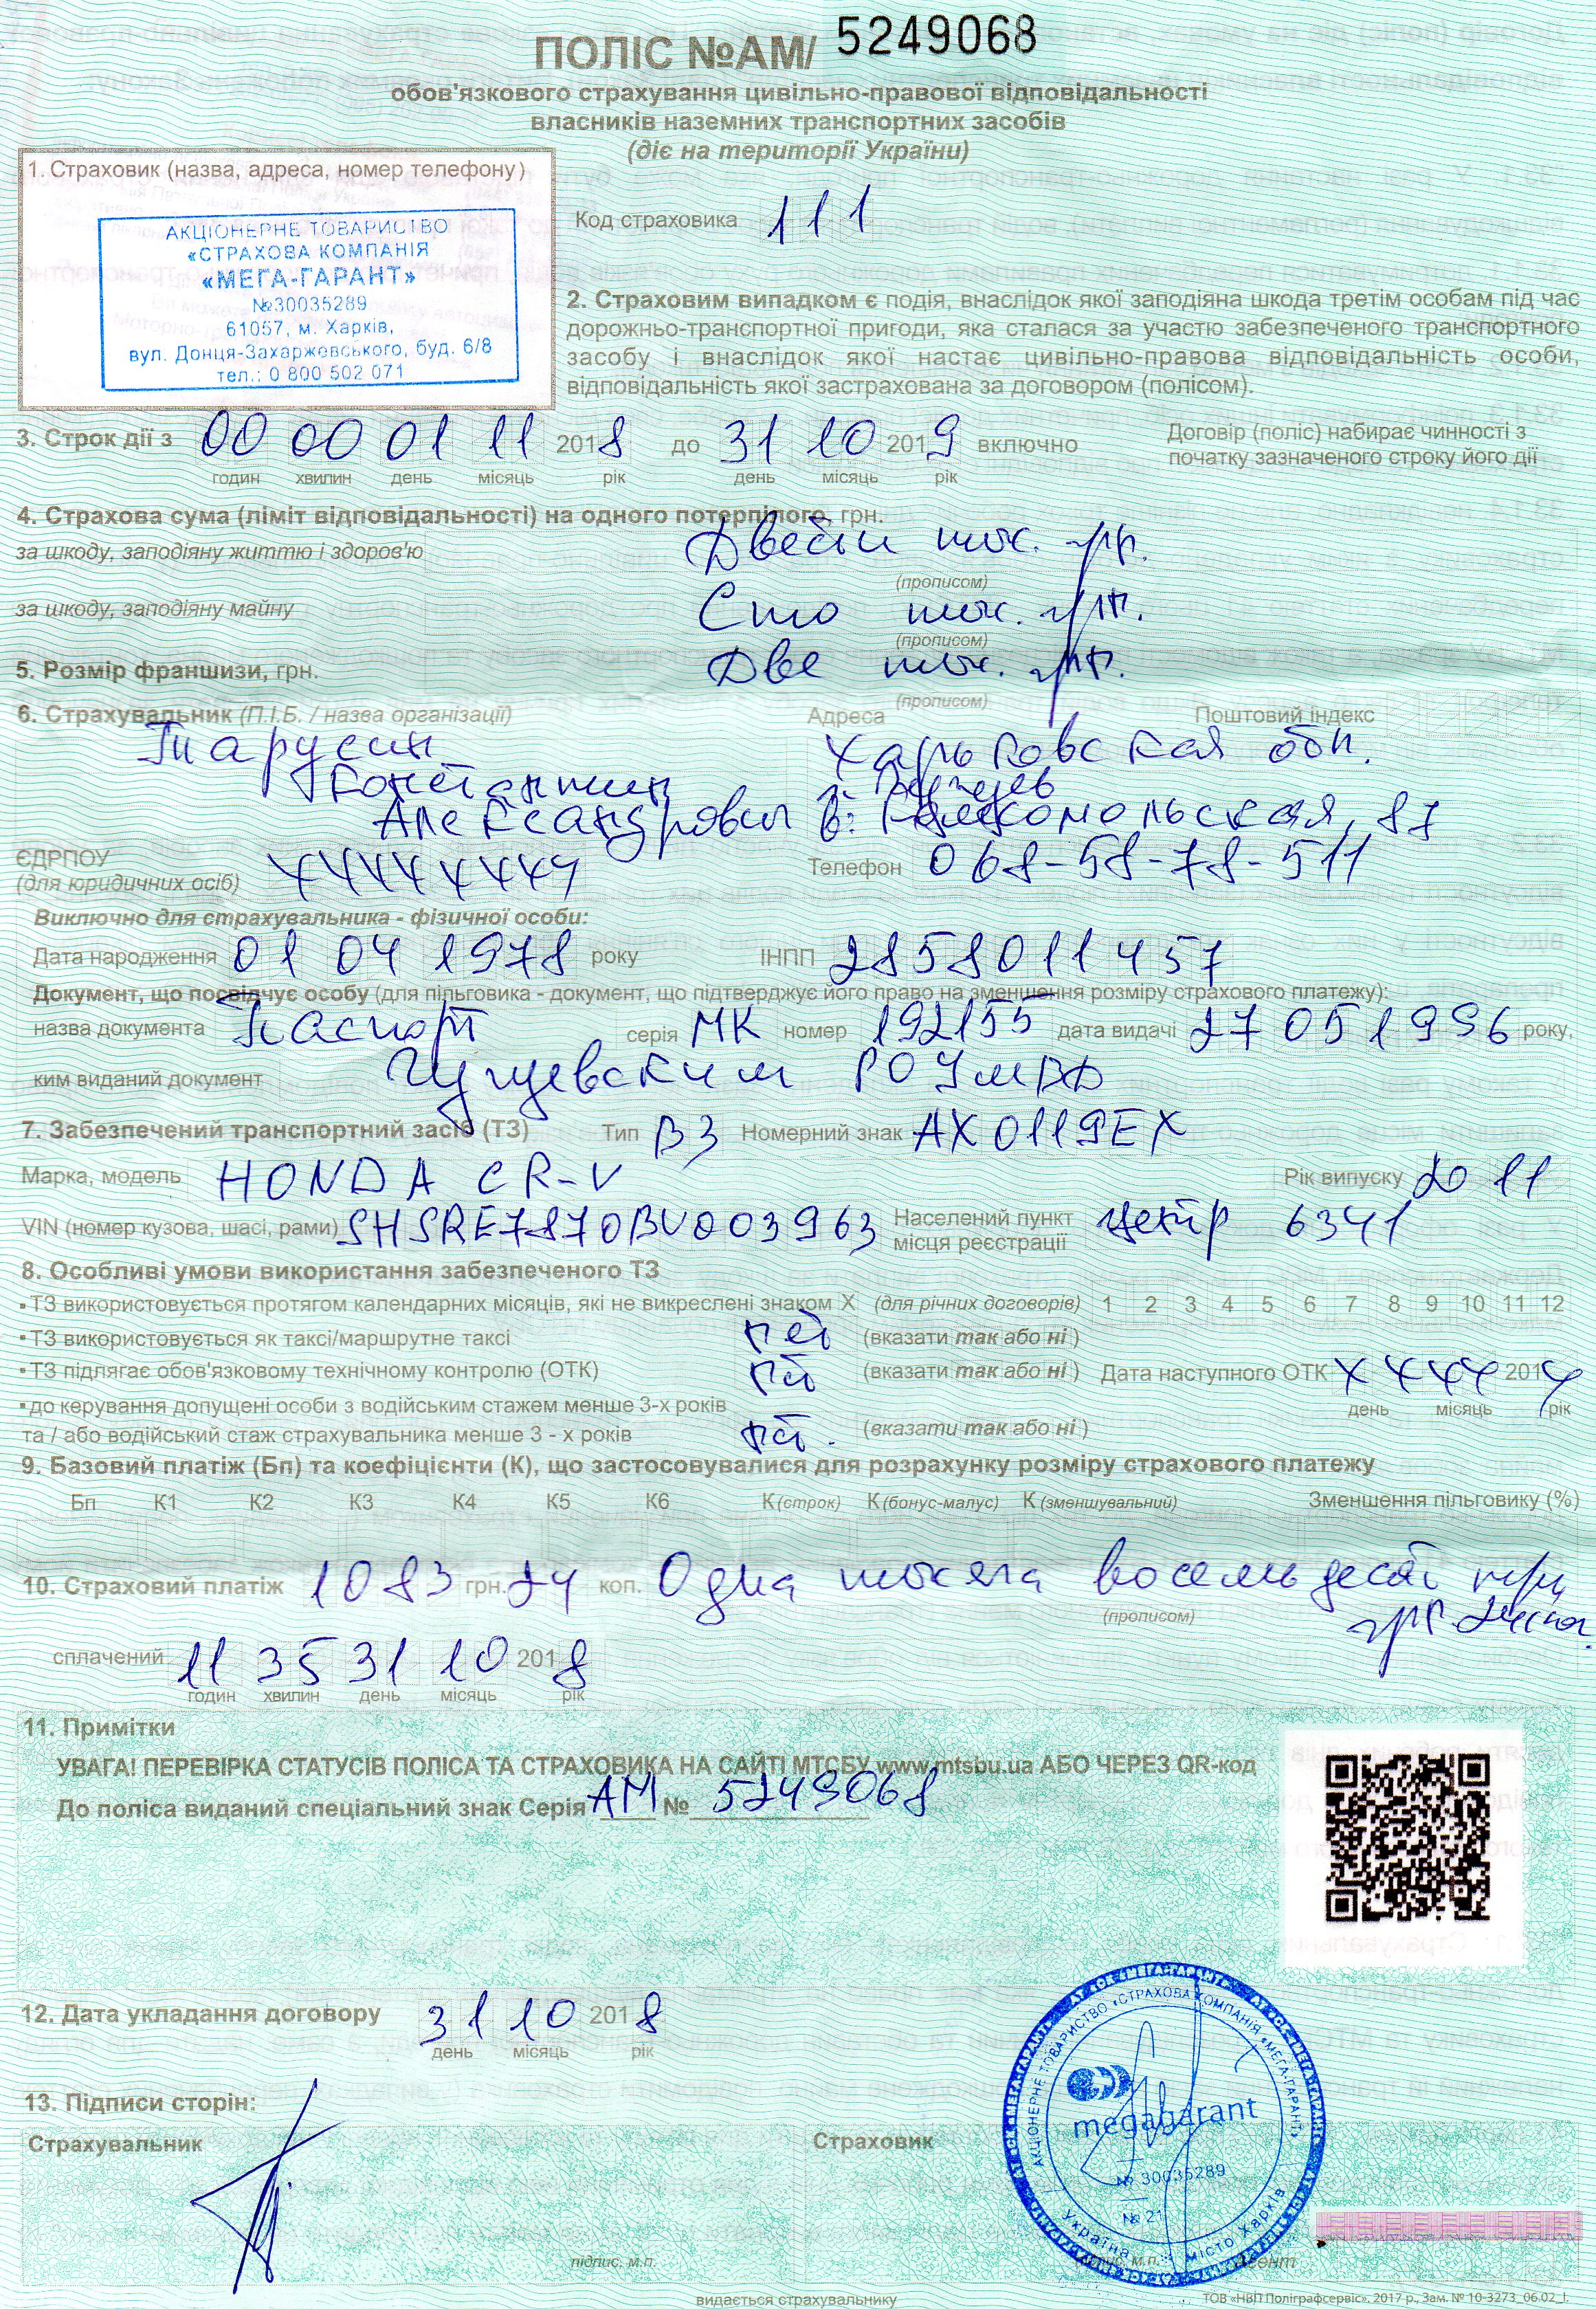 ПОЛІС №АМ/ 5249068
обов'язкового страхування цивільно-правової відповідальності
власників наземних транспортних засобів
(діє на території України)
1. Страховик (назва, адреса, номер телефону)
АКЦІОНЕРНЕ ТОВАРИСТВО
«СТРАХОВА КОМПАНІЯ
«МЕГА-ГАРАНТ»
№30035289
61057, м. Харків,
вул. Донця-Захаржевського, буд. 6/8
тел.: 0 800 502 071
Код страховика 111
2. Страховим випадком є подія, внаслідок якої заподіяна шкода третім особам під час
дорожньо-транспортної пригоди, яка сталася за участю забезпеченого транспортного
засобу і внаслідок якої настає цивільно-правова відповідальність особи,
відповідальність якої застрахована за договором (полісом).
3. Строк дії з 00 00 01 11 2018 до 31 10 2019 включно
годин хвилин день місяць рік день місяць рік
Договір (поліс) набирає чинності з
початку зазначеного строку його дії
4. Страхова сума (ліміт відповідальності) на одного потерпілого, грн.
за шкоду, заподіяну життю і здоров'ю Двести тыс. грн.
(прописом)
за шкоду, заподіяну майну Сто тыс. грн.
(прописом)
5. Розмір франшизи, грн. Две тыс. грн.
(прописом)
6. Страхувальник (П.І.Б. / назва організації) Адреса Поштовий індекс
Тарусин Харьковская обл.
Константин
Александрович Комсомольская, 87
ЄДРПОУ
(для юридичних осіб)
Телефон 068-58-78-511
Виключно для страхувальника - фізичної особи:
Дата народження 01 04 1978 року ІНПП 2858011457
Документ, що посвідчує особу (для пільговика - документ, що підтверджує його право на зменшення розміру страхового платежу):
назва документа Паспорт серія МК номер 192155 дата видачі 27 05 1996 року,
ким виданий документ Чугуевским РОУМВД
7. Забезпечений транспортний засіб (ТЗ) Тип В3 Номерний знак АХ0119ЕХ
Марка, модель HONDA CR-V Рік випуску 2011
VIN (номер кузова, шасі, рами) SHSRE7870BU003963 Населений пункт
місця реєстрації центр 6341
8. Особливі умови використання забезпеченого ТЗ
▪ТЗ використовується протягом календарних місяців, які не викреслені знаком Х (для річних договорів) 1 2 3 4 5 6 7 8 9 10 11 12
▪ТЗ використовується як таксі/маршрутне таксі нет (вказати так або ні)
▪ТЗ підлягає обов'язковому технічному контролю (ОТК) нет (вказати так або ні) Дата наступного ОТК 201
день місяць рік
▪до керування допущені особи з водійським стажем менше 3-х років
та / або водійський стаж страхувальника менше 3 - х років нет. (вказати так або ні)
9. Базовий платіж (Бп) та коефіцієнти (К), що застосовувалися для розрахунку розміру страхового платежу
Бп К1 К2 К3 К4 К5 К6 К(строк) К(бонус-малус) К(зменшувальний) Зменшення пільговику (%)
10. Страховий платіж 1083 грн. 24 коп. Одна тысяча восемьдесят три
(прописом)
грн. 24 коп.
сплачений 11 35 31 10 2018
годин хвилин день місяць рік
11. Примітки
УВАГА! ПЕРЕВІРКА СТАТУСІВ ПОЛІСА ТА СТРАХОВИКА НА САЙТІ МТСБУ www.mtsbu.ua АБО ЧЕРЕЗ QR-код
До поліса виданий спеціальний знак Серія АМ № 5249068
12. Дата укладання договору 31 10 2018
день місяць рік
13. Підписи сторін:
Страхувальник
Страховик
АКЦІОНЕРНЕ ТОВАРИСТВО «СТРАХОВА КОМПАНІЯ «МЕГА-ГАРАНТ»
megagarant
№ 30035289
№ 21
Україна місто Харків
підпис, м.п.
Агент
видається страхувальнику
ТОВ «НВП Поліграфсервіс», 2017 р., Зам. № 10-3273_06.02_І.